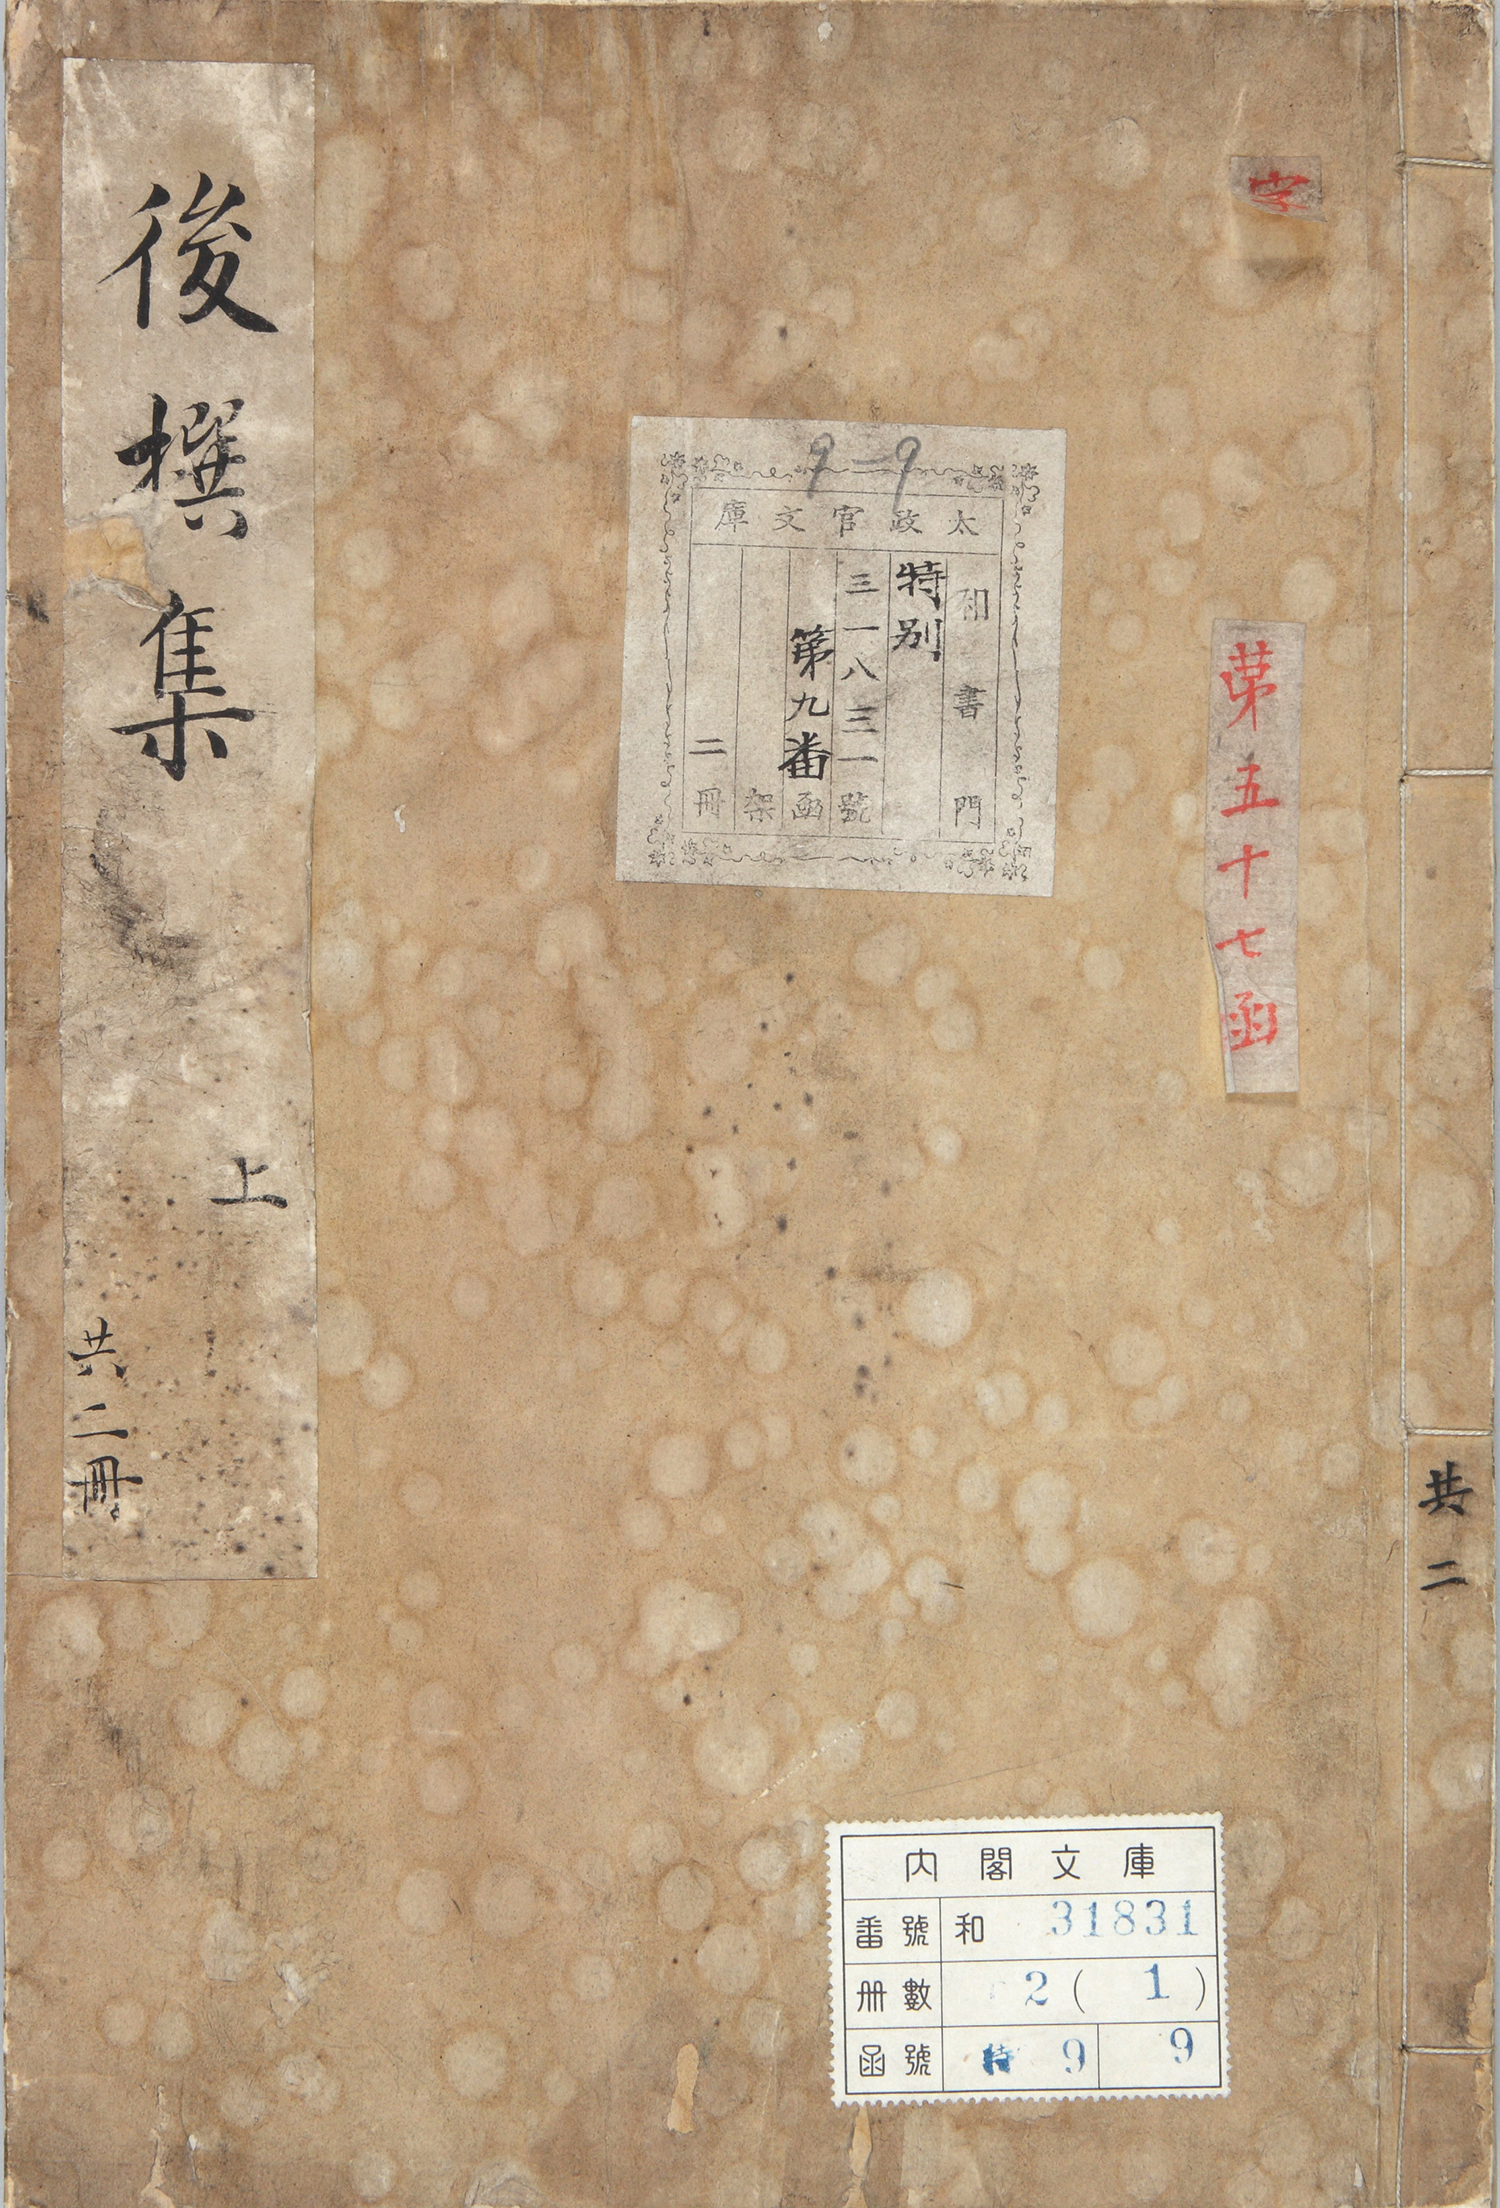 後撰集
上
共二冊
字
第五十七函
9-9
太政官文庫
和書門
特別
三一八三一號
第九番函
架
二冊
共二
内閣文庫
番號 和 31831
冊數 2(1)
函號 特 9 9